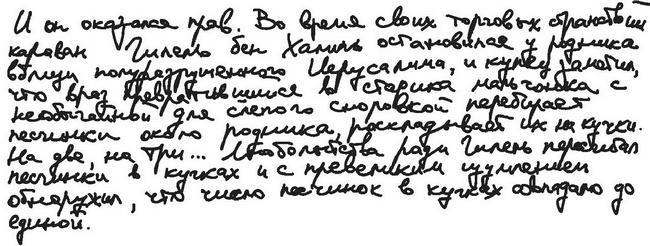 И он оказался прав. Во время своих торговых странствий
караван Гилель бен Халиль остановился у родника
вблизи полуразрушенного Иерусалима, и купец заметил,
что враз превратившийся в старика мальчонка с
необычайной для слепого сноровкой перебирает
песчинки около родника, раскладывает их на кучки.
На две, на три... Любопытства ради Гилель пересчитал
песчинки в кучках и с превеликим изумлением
обнаружил, что число песчинок в кучках совпадало до
единой.